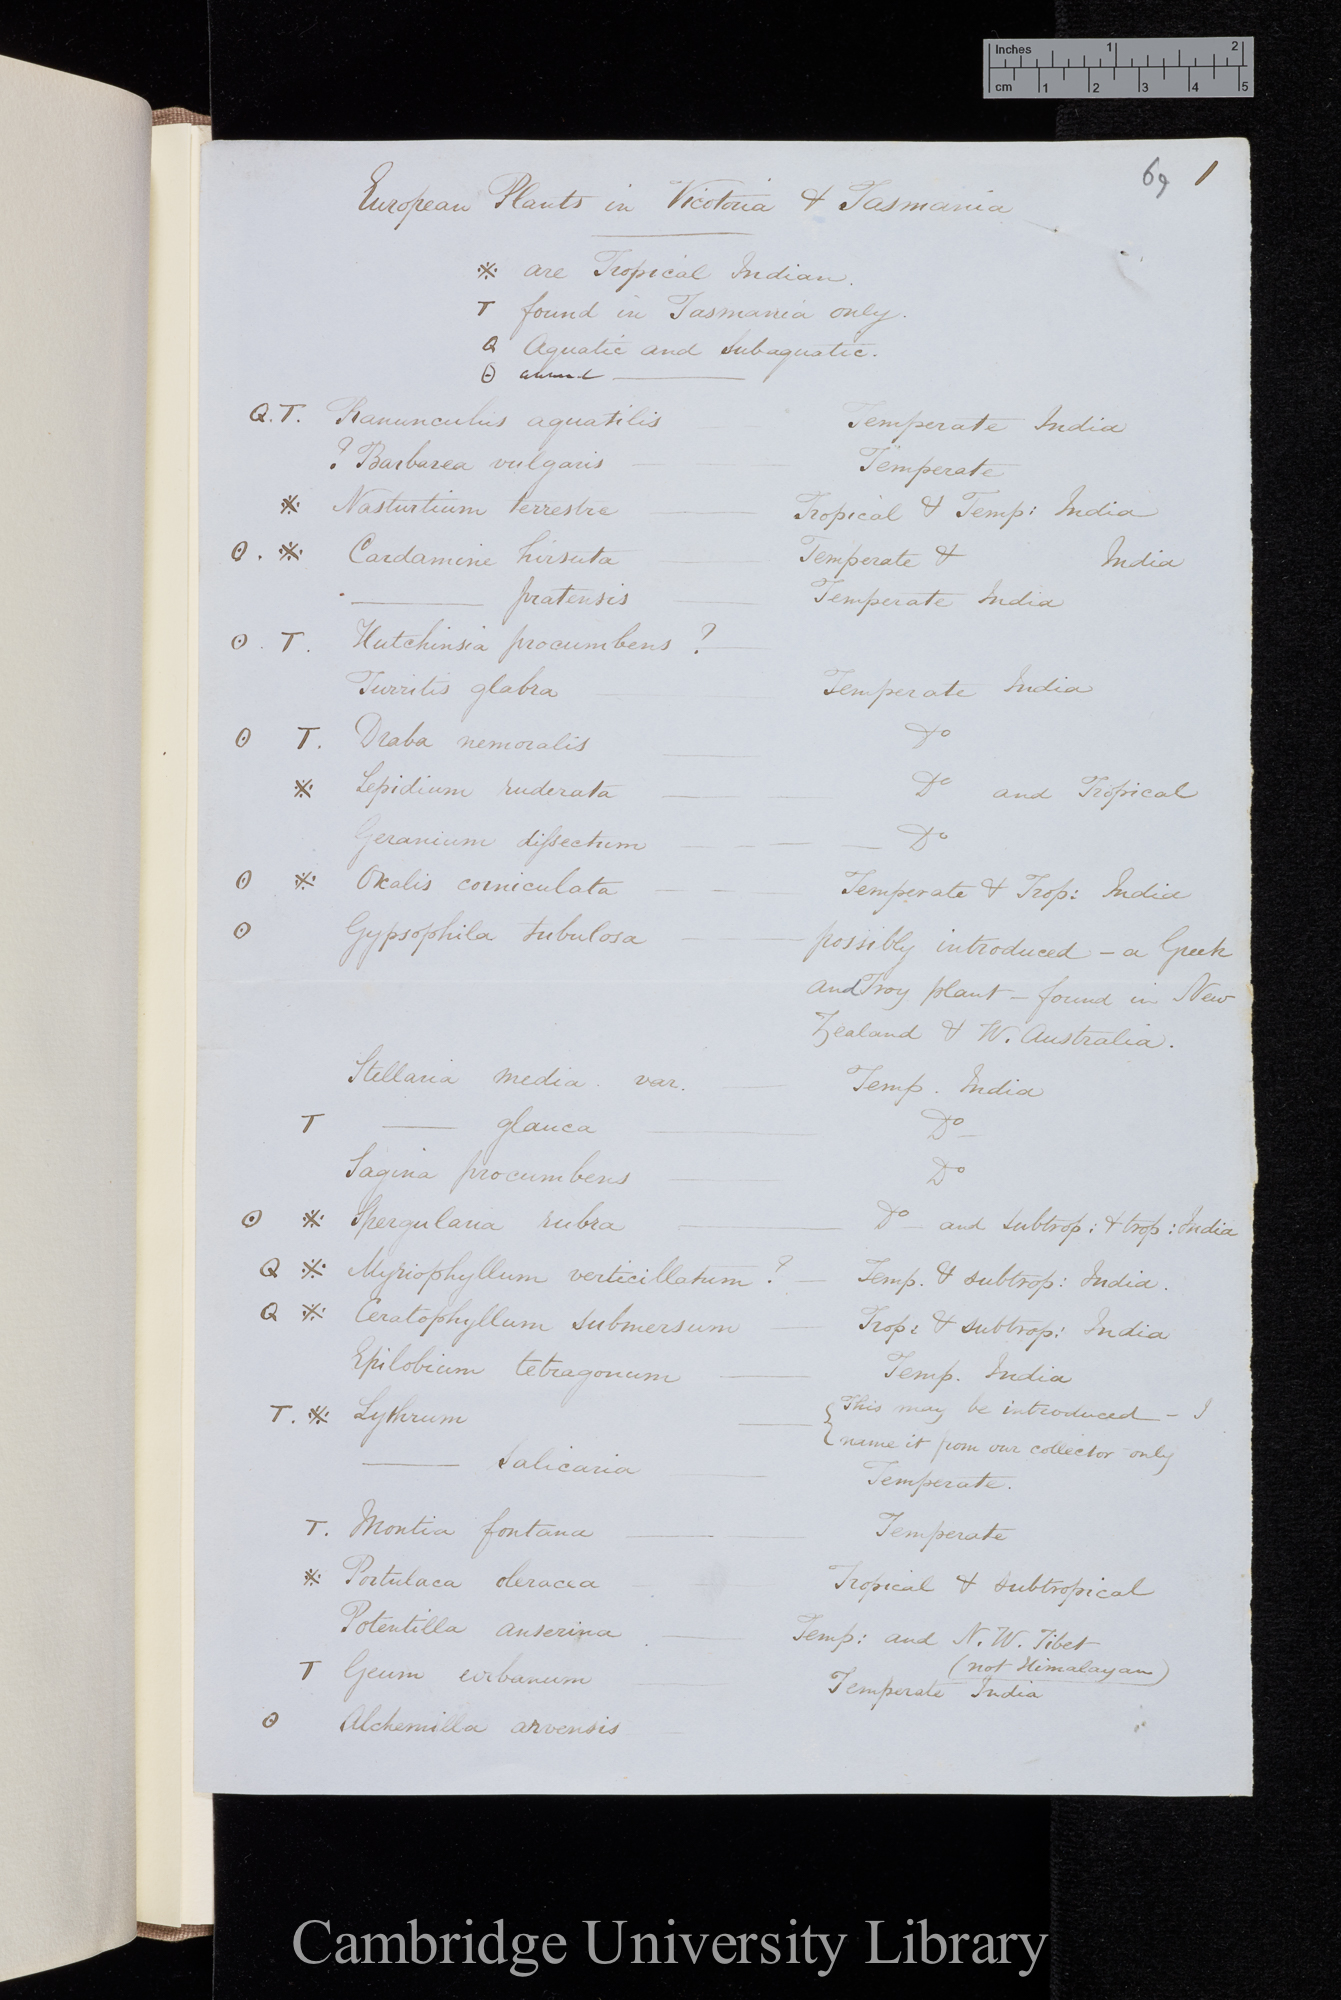 Inches 1 2
cm 1 2 3 4 5
69 1
European Plants in Vicotoria & Tasmania
※ are Tropical Indian.
T found in Tasmania only.
Q Aquatic and Subaquatic.
⊙ annual
Q. T. Ranunculus aquatilis Temperate India
? Barbarea vulgaris Temperate
※ Nasturtium terrestre Tropical & Temp: India
⊙. ※ Cardamine hirsuta Temperate & India
——— pratensis Temperate India
⊙. T. Hutchinsia procumbens ?
Turritis glabra Temperate India
⊙ T. Draba nemoralis Do
※ Lepidium ruderata Do and Tropical
Geranium dissectum Do
⊙ ※ Oxalis corniculata Temperate & Trop: India
⊙ Gypsophila tubulosa possibly introduced – a Greek
and Troy plant – found in New
Zealand & W. Australia.
Stellaria media. var. Temp. India
T ——— glauca Do
Sagina procumbens Do
⊙ ※ Spergularia rubra Do and subtrop: & trop: India
Q ※ Myriophyllum verticillatum ? Temp. & subtrop: India.
Q ※ Ceratophyllum submersum Trop: & subtrop: India
Epilobium tetragonum Temp. India
T. ※ Lythrum { This may be introduced – I
name it from our collector only
——— Salicaria Temperate.
T. Montia fontana Temperate
※ Portulaca oleracea Tropical & subtropical
Potentilla anserina Temp: and N. W. Tibet
(not Himalayan)
T Geum urbanum Temperate India
⊙ Alchemilla arvensis
Cambridge University Library